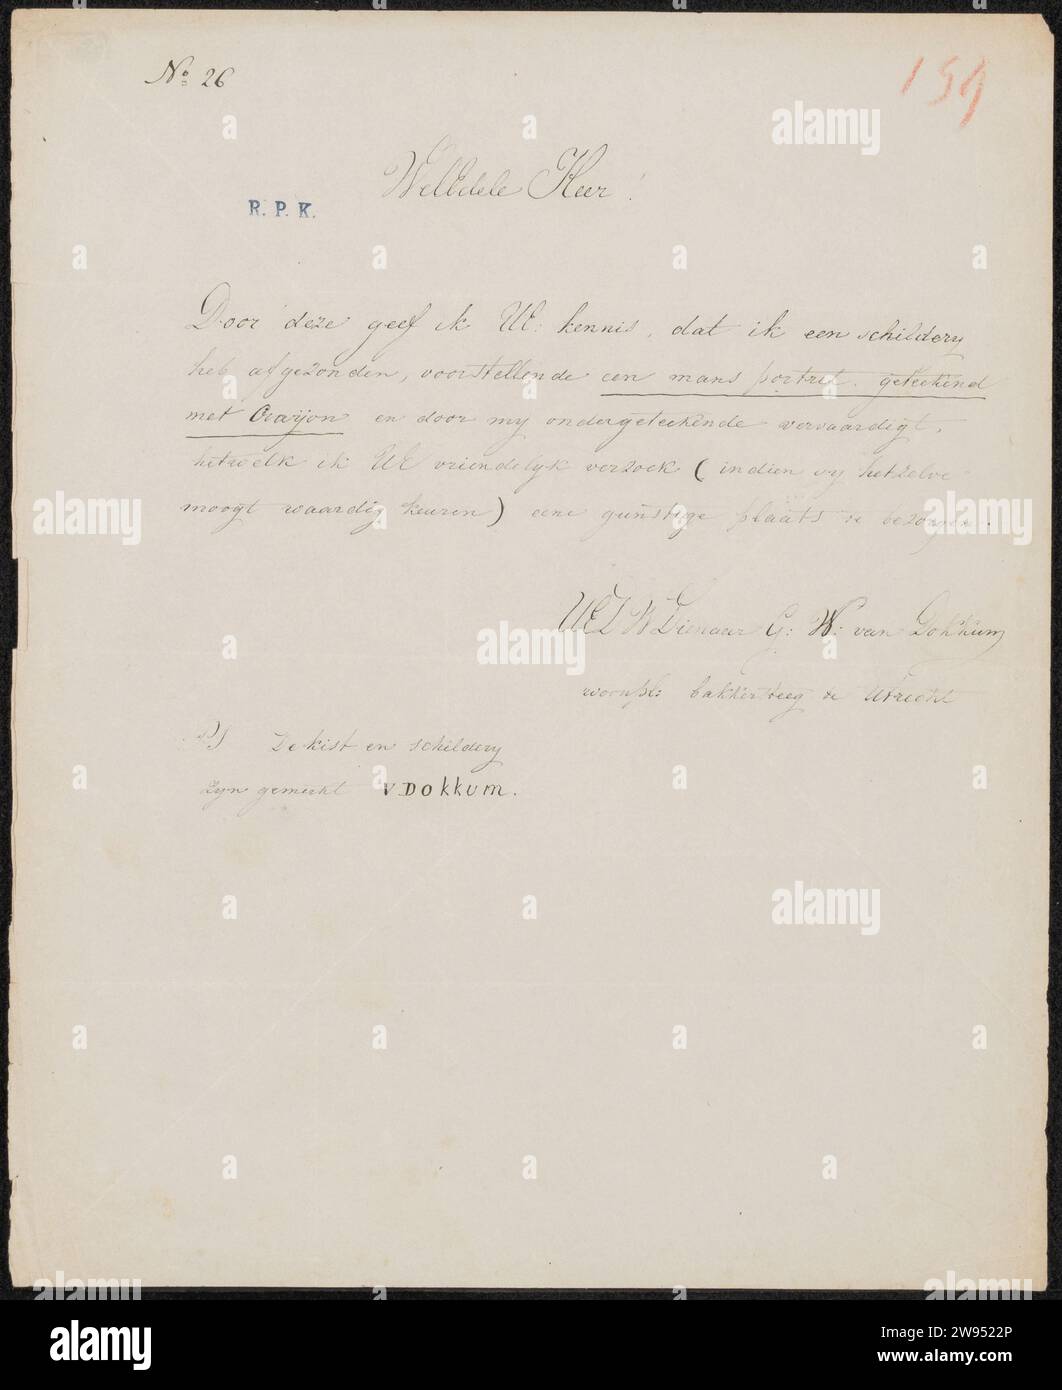 No 26
159
WelEdele Heer!
R. P. K.
Door deze geef ik UE: kennis, dat ik een schildery
heb afgezonden, voorstellende een mans portret. geteekend
met Craijon en door my ondergeteekende vervaardigt,
hetwelk ik UE vriendelyk verzoek (indien vy hetzelve
moogt waardig keuren) eene gunstige plaats te bezorgen.
UED W Dienaar G: W: van Dokkum
woonpl: bakkersteeg te Utrecht
PS De kist en schildery
zyn gemerkt V. DOKKUM.
alamy
Image ID: 2W9522P
www.alamy.com